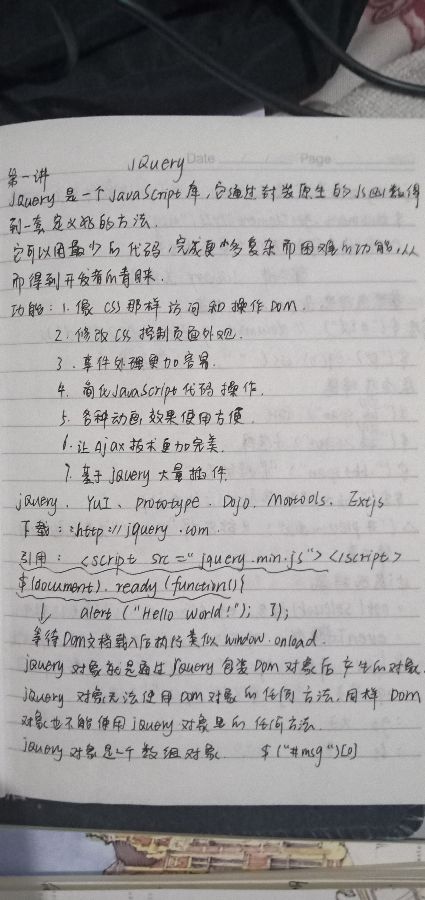 jQuery Date Page
第一讲
jQuery 是一个 JavaScript 库,它通过封装原生的 JS 函数得
到一套定义好的方法.
它可以用最少的代码,完成更多复杂而困难的功能,从
而得到开发者的青睐.
功能: 1. 像 CSS 那样访问和操作 DOM.
2. 修改 CSS 控制页面外观.
3. 事件处理更加容易.
4. 简化 JavaScript 代码操作.
5. 各种动画效果使用方便.
6. 让 Ajax 技术更加完美.
7. 基于 jQuery 大量插件.
jQuery、YuI、prototype、Dojo、Mootools、Extjs
下载: http://jquery.com.
引用: <script src="jquery.min.js"></script>
$(document).ready(function(){
↓ alert("Hello world!"); });
等待 Dom 文档载入后执行类似 window.onload.
jQuery 对象就是通过 jQuery 包装 DOM 对象后产生的对象.
jQuery 对象无法使用 DOM 对象的任何方法,同样 DOM
对象也不能使用 jQuery 对象里的任何方法.
jQuery 对象是一个数组对象. $("#msg")[0]